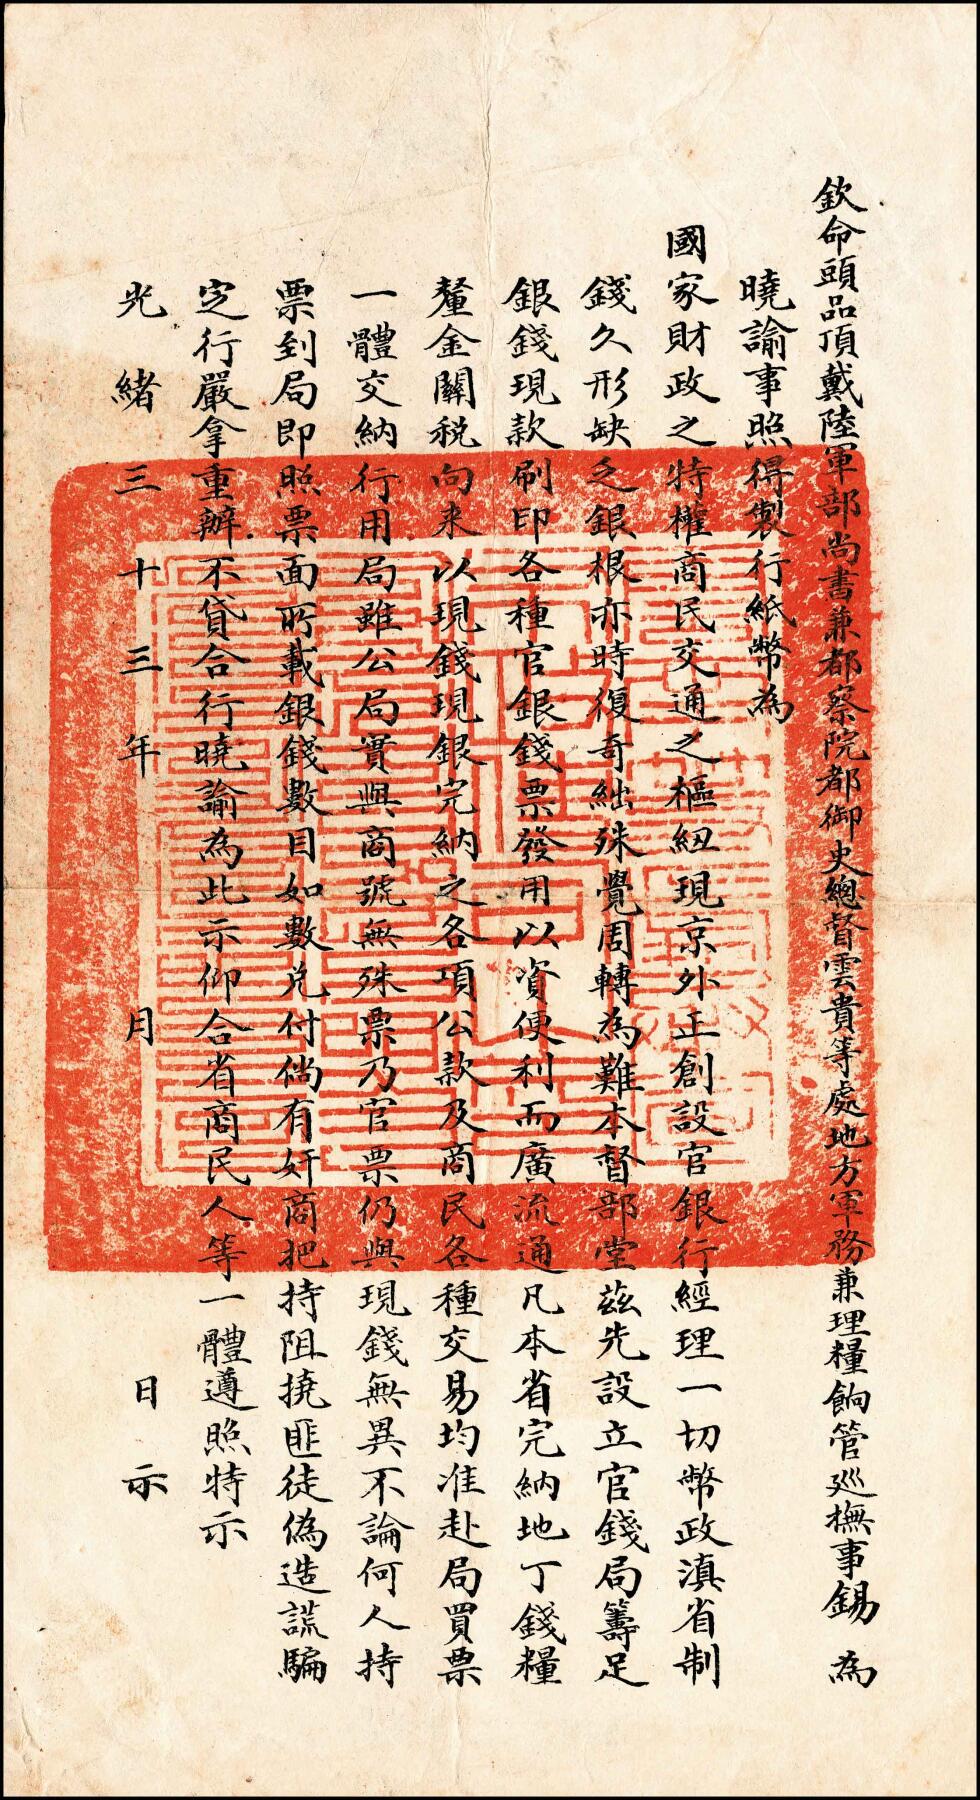 欽命頭品頂戴陸軍部尚書兼都察院都御史總督雲貴等處地方軍務兼理糧餉管巡撫事錫為
曉諭事照得製行紙幣為
國家財政之特權商民交通之樞紐現京外正創設官銀行經理一切幣政滇省制
錢久形缺乏銀根亦時復奇絀殊覺周轉為難本督部堂茲先設立官錢局籌足
銀錢現款刷印各種官銀錢票發用以資便利而廣流通凡本省完納地丁錢糧
釐金關稅向來以現錢現銀完納之各項公款及商民各種交易均准赴局買票
一體交納行用局雖公局實與商號無殊票乃官票仍與現錢無異不論何人持
票到局即照票面所載銀錢數目如數兌付倘有奸商把持阻撓匪徒偽造謊騙
定行嚴拿重辦不貸合行曉諭為此示仰合省商民人等一體遵照特示
光緒三十三年月日示